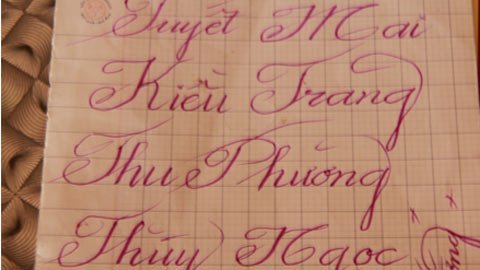 Tuyết Mai
Kiều Trang
Thu Phương
Thùy Ngọc